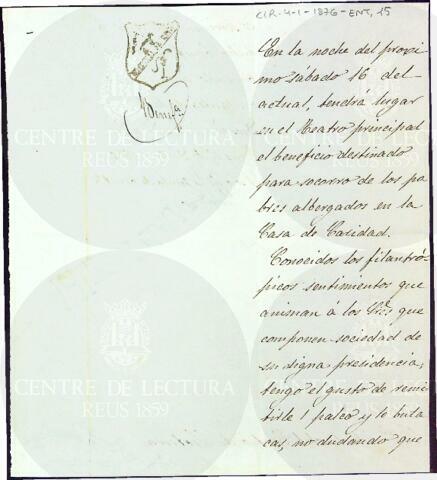 CIR-4-1-1876-ENT, 15
En la noche del proxi
mo sábado 16 del
actual, tendrá lugar
en el Teatro principal
el beneficio destinado
para socorro de los po
bres albergados en la
Casa de Caridad.
Conocidos los filantró-
picos sentimientos que
animan á los Sres que
componen sociedad de
su digna presidencia,
tengo el gusto de remi
tirle 1 palco y 6 buta
cas, no dudando que
CENTRE DE LECTURA
REUS 1859
CENTRE DE LECTURA
REUS 1859